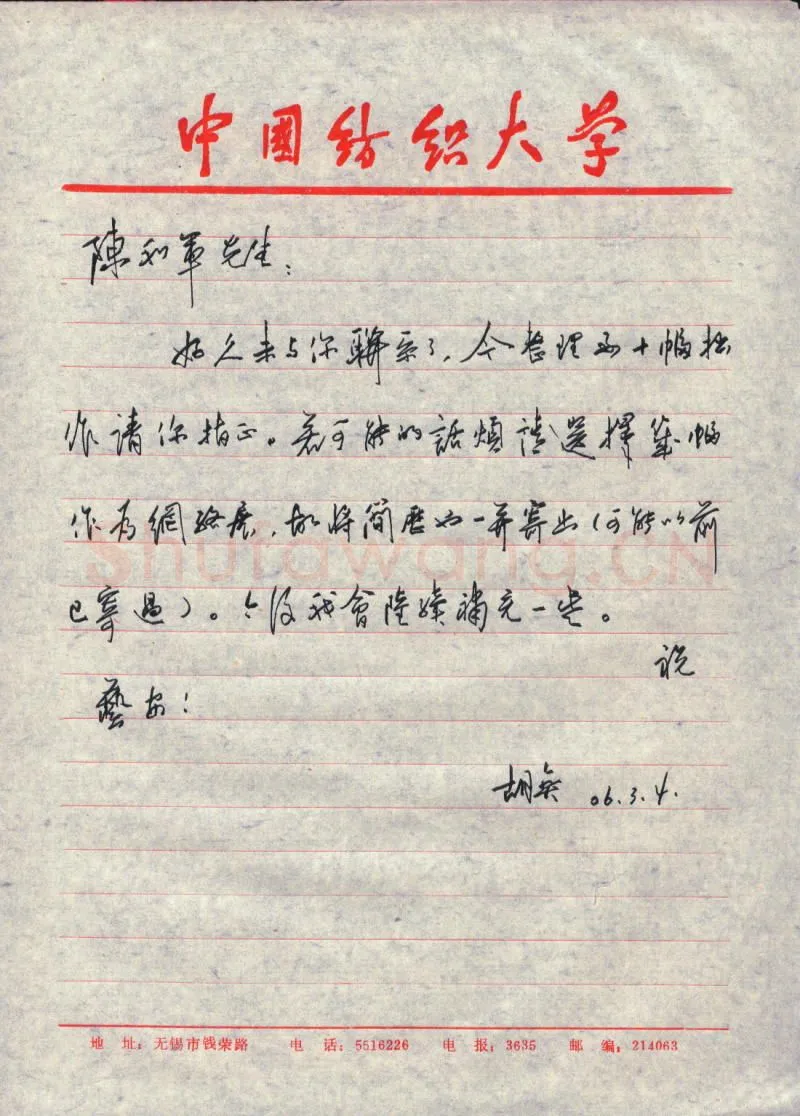 中国纺织大学
陳和軍先生：
好久未与你聯系了，今整理出十幅拙
作請你指正。若可能的話煩請選擇幾幅
作为網络展，故将简歷也一并寄出（可能以前
已寄過）。今后我會陸續補充一些。
祝
藝安！
胡 06.3.4.
shufawang.CN
地 址：无锡市钱荣路 电 话：5516226 电 报：3635 邮 编：214063